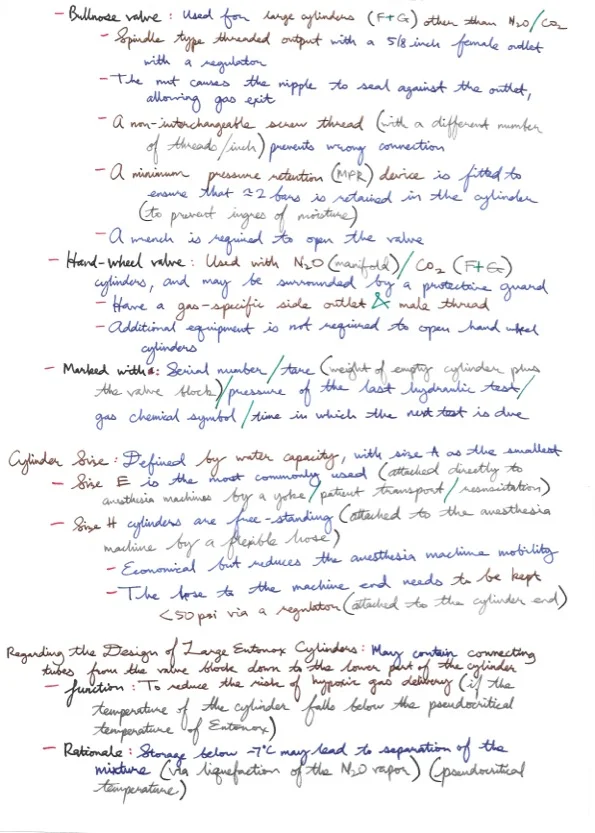 - Bullnose valve : Used for large cylinders (F+G) other than N₂O/CO₂
- Spindle type threaded output with a 5/8 inch female outlet
with a regulator
- The nut causes the nipple to seal against the outlet,
allowing gas exit
- A non-interchangeable screw thread (with a different number
of threads/inch) prevents wrong connection
- A minimum pressure retention (MPR) device is fitted to
ensure that ≃2 bars is retained in the cylinder
(to prevent ingres of moisture)
- A wrench is required to open the valve
- Hand-wheel valve : Used with N₂O (manifold)/CO₂ (F+G)
cylinders, and may be surrounded by a protective guard
- Have a gas-specific side outlet & male thread
- Additional equipment is not required to open hand wheel
cylinders
- Marked with : Serial number/tare (weight of empty cylinder plus
the valve block)/pressure of the last hydraulic test/
gas chemical symbol/time in which the next test is due
Cylinder Size : Defined by water capacity, with size A as the smallest
- Size E is the most commonly used (attached directly to
anesthesia machines by a yoke/patient transport/resuscitation)
- Size H cylinders are free-standing (attached to the anesthesia
machine by a flexible hose)
- Economical but reduces the anesthesia machine mobility
- The hose to the machine end needs to be kept
<50 psi via a regulator (attached to the cylinder end)
Regarding the Design of Large Entonox Cylinders : May contain connecting
tubes from the valve block down to the lower part of the cylinder
- function : To reduce the risk of hypoxic gas delivery (if the
temperature of the cylinder falls below the pseudocritical
temperature of Entonox)
- Rationale : Storage below -7°C may lead to separation of the
mixture (via liquefaction of the N₂O vapor) (pseudocritical
temperature)